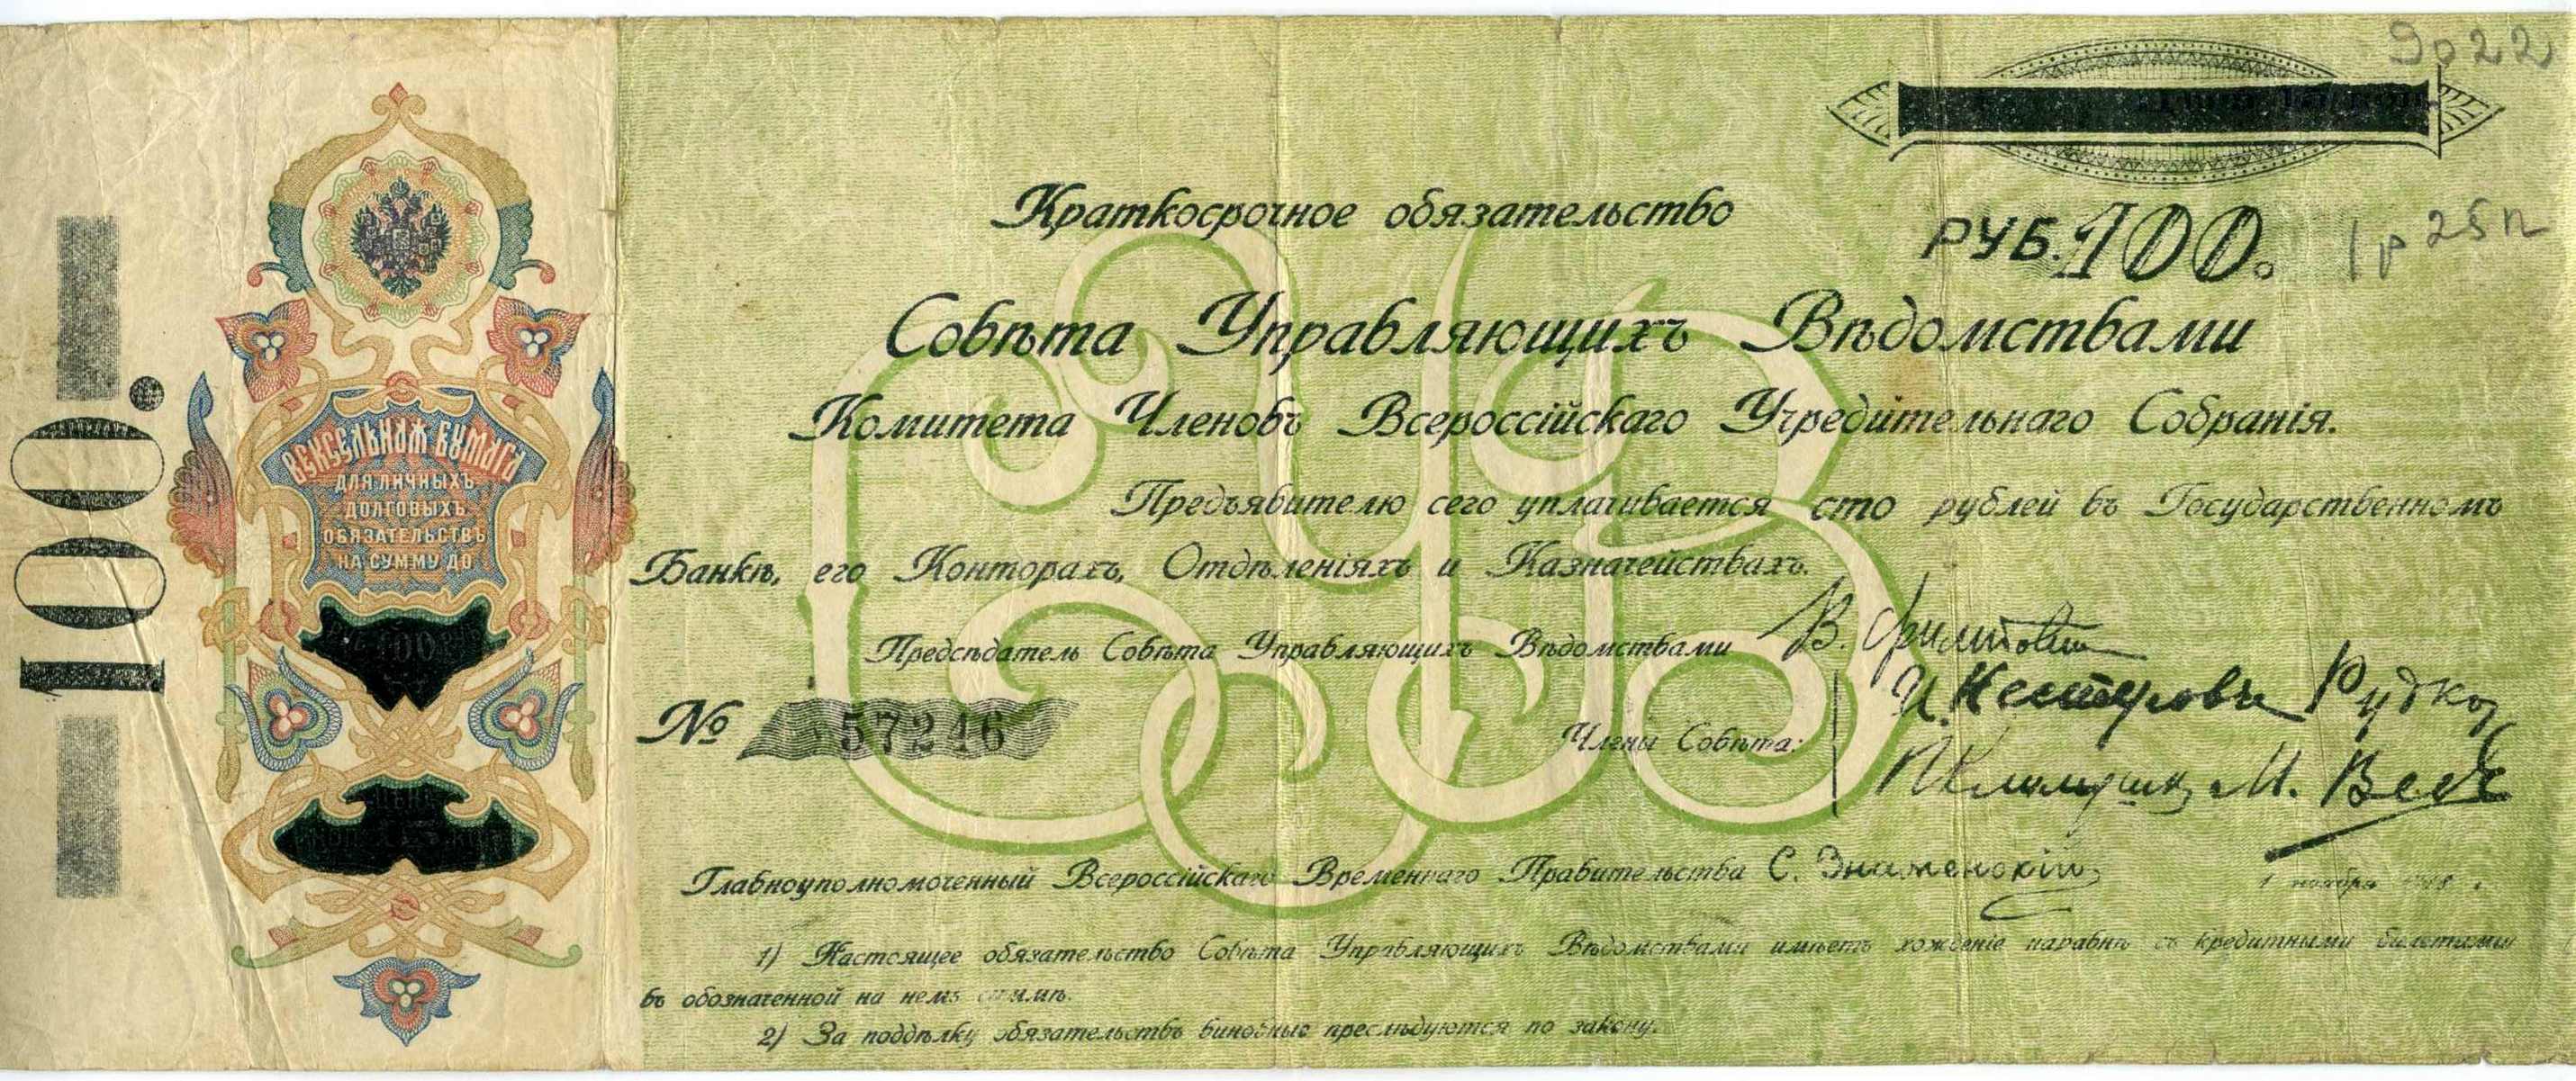 9022
Краткосрочное обязательство
РУБ. 100.
1р 25п
Совѣта Управляющихъ Вѣдомствами
Комитета Членовъ Всероссійскаго Учредительнаго Собранія.
Предъявителю сего уплачивается сто рублей въ Государственномъ
Банкѣ, его Конторахъ, Отдѣленіяхъ и Казначействахъ.
Предсѣдатель Совѣта Управляющихъ Вѣдомствами В.
И. Нестеровъ
№ 57246
Члены Совѣта:
М.
Главноуполномоченный Всероссійскаго Временнаго Правительства С. Знаменскій
1 ноября 1918
1) Настоящее обязательство Совѣта Управляющихъ Вѣдомствами имѣетъ хожденіе наравнѣ съ кредитными билетами
въ обозначенной на немъ суммѣ.
2) За поддѣлку обязательствъ виновные преслѣдуются по закону.
СУВ
100.
ВЕКСЕЛЬНАЯ БУМАГА
ДЛЯ ЛИЧНЫХЪ
ДОЛГОВЫХЪ
ОБЯЗАТЕЛЬСТВЪ
НА СУММУ ДО
100